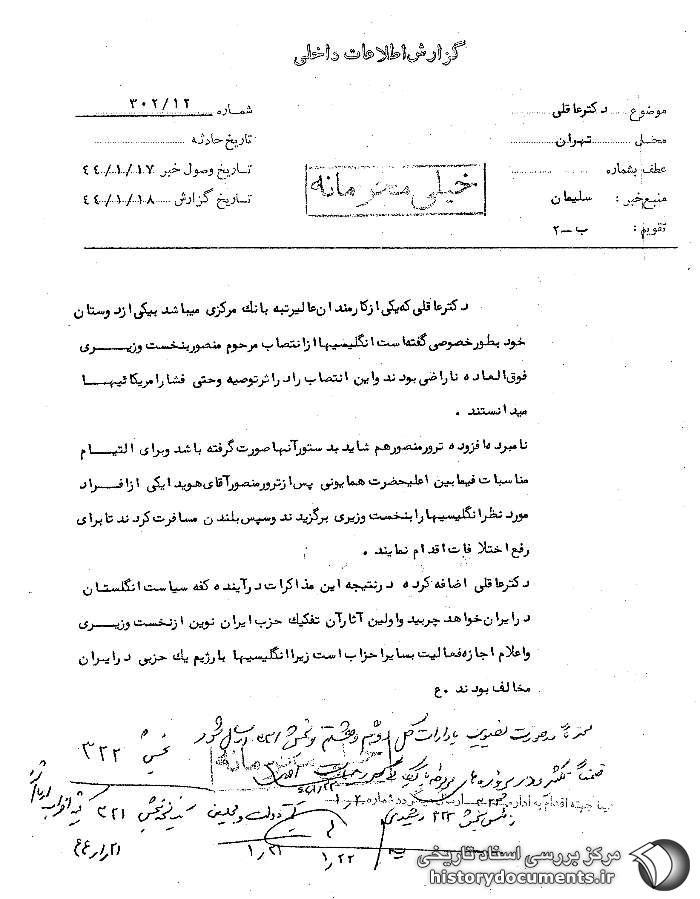 گزارش اطلاعات داخلی
موضوع دکتر عاقلی
محل تهران
عطف بشماره
منبع خبر : سلیمان
تقویم : ب - ۲
شماره ۳۰۲/۱۲
تاریخ حادثه
تاریخ وصول خبر ۴۴/۱/۱۷
تاریخ گزارش ۴۴/۱/۱۸
خیلی محرمانه
دکتر عاقلی که یکی از کارمندان عالیرتبه بانک مرکزی میباشد بیکی از دوستان
خود بطور خصوصی گفته است انگلیسیها از انتصاب مرحوم منصور بنخست وزیری
فوق العاده ناراضی بودند و این انتصاب را در اثر توصیه و حتی فشار امریکائیها
میدانستند .
نامبرده افزوده ترور منصور هم شاید بدستور آنها صورت گرفته باشد و برای التیام
مناسبات فیمابین اعلیحضرت همایونی پس از ترور منصور آقای هویدا یکی از افراد
مورد نظر انگلیسیها را بنخست وزیری برگزیدند و سپس بلندن مسافرت کردند تا برای
رفع اختلافات اقدام نمایند .
دکتر عاقلی اضافه کرده در نتیجه این مذاکرات در آینده کفه سیاست انگلستان
در ایران خواهد چربید و اولین آثار آن تفکیک حزب ایران نوین از نخست وزیری
و اعلام اجازه فعالیت بسایر احزاب است زیرا انگلیسیها با رژیم یک حزبی در ایران
مخالف بودند . ع
بخش ۳۲۲
خیلی محرمانه
جهت اقدام به اداره
۱/۲۱
۱/۲۲
مرکز بررسی اسناد تاریخی
historydocuments.ir